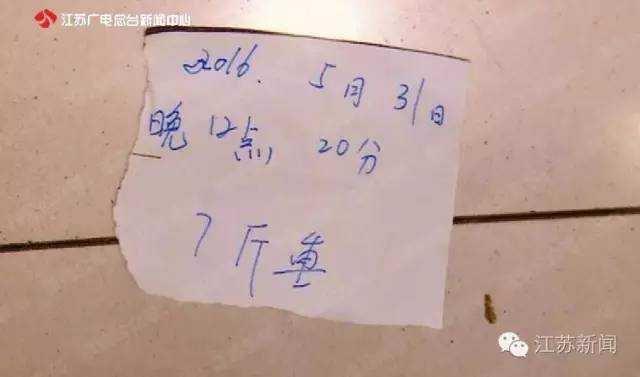 江苏广电总台新闻中心
2016. 5月31日
晚12点 20分
7斤重
江苏新闻